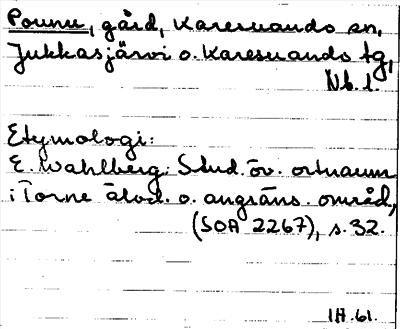 Pounu, gård, Karesuando sn,
Jukkasjärvi o. Karesuando tg,
Nb. l.
Etymologi:
E. Wahlberg: Stud. öv. ortnamn
i Torne älvd. o. angräns. områd,
(SOA 2267), s. 32.
IH. 61.